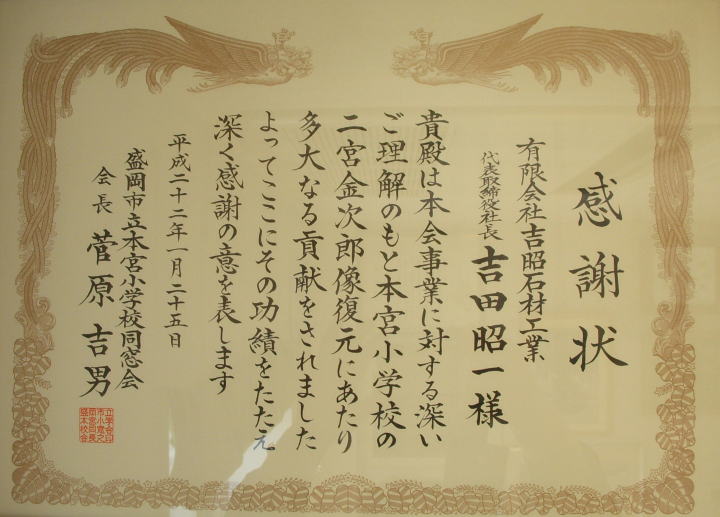 感謝状
有限会社吉昭石材工業
代表取締役社長 吉田昭一様
貴殿は本会事業に対する深い
ご理解のもと本宮小学校の
二宮金次郎像復元にあたり
多大なる貢献をされました
よってここにその功績をたたえ
深く感謝の意を表します
平成二十二年一月二十五日
盛岡市立本宮小学校同窓会
会長 菅原吉男